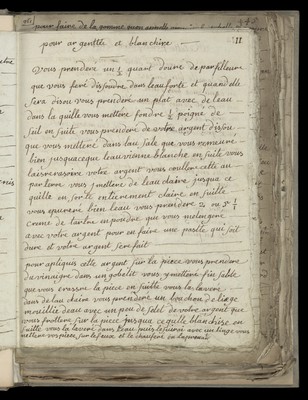 pour faire de la
pour argentté et blanchire
11
Vous prendere un ½ quart donre de parfilleure
que vous feré disoudre dans leau forte et quand elle
sera disou vous prendere un plat avec de leau
dans la quille vous mettere fondre ½ poigné de
sel en suite vous prendere de votre argent disou
que vous mettere dans leau salé que vous remuere
bien jusquaceque leau vienne blanche en suite vous
laissere rasoire votre argent vous coullere cette eau
par terre vous y mettere de leau claire jusqua ce
quille en sorte entierement claire en suitte
vous epureré bien leau vous prendere
creme de tartre en poudre que vous melengere
avec votre argent pour en faire une patte qui soit
dure et votre argent sere fait
pour apliquer cette argent sur la piece vous prendere
du vinaigre dans un gobelit vous y mettere fin sable
que vous erasse la piece en suitte vous la laveré
dans de lau claire vous prendere un bouchon de liege
mouillie deau avec un peu de sel de votre argent que
vous frottere sur la piece jusqua ce quelle blanchise en
suitte vous la laveré dans leau puis lesuiré avec un linge vous
metterer vos piece sur le feux et le chauferé